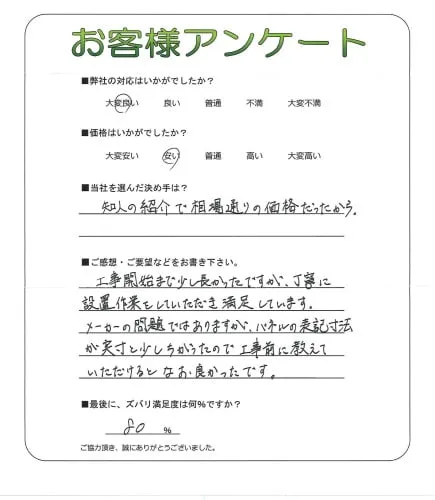 お客様アンケート
■弊社の対応はいかがでしたか?
大変良い 良い 普通 不満 大変不満
■価格はいかがでしたか?
大変安い 安い 普通 高い 大変高い
■当社を選んだ決め手は?
知人の紹介で相場通りの価格だったから。
■ご感想・ご要望などをお書き下さい。
工事開始まで少し長かったですが、丁寧に
設置作業をしていただき満足しています。
メーカーの問題ではありますが、パネルの表記寸法
が実寸と少しちがうたので工事前に教えて
いただけるとなお良かったです。
■最後に、ズバリ満足度は何%ですか?
80 %
ご協力頂き、誠にありがとうございました。